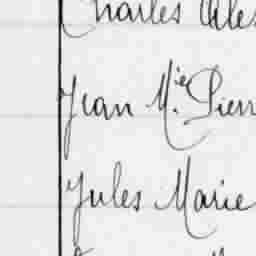 Charles Ale
Jean M.ie Pierr
Jules Marie